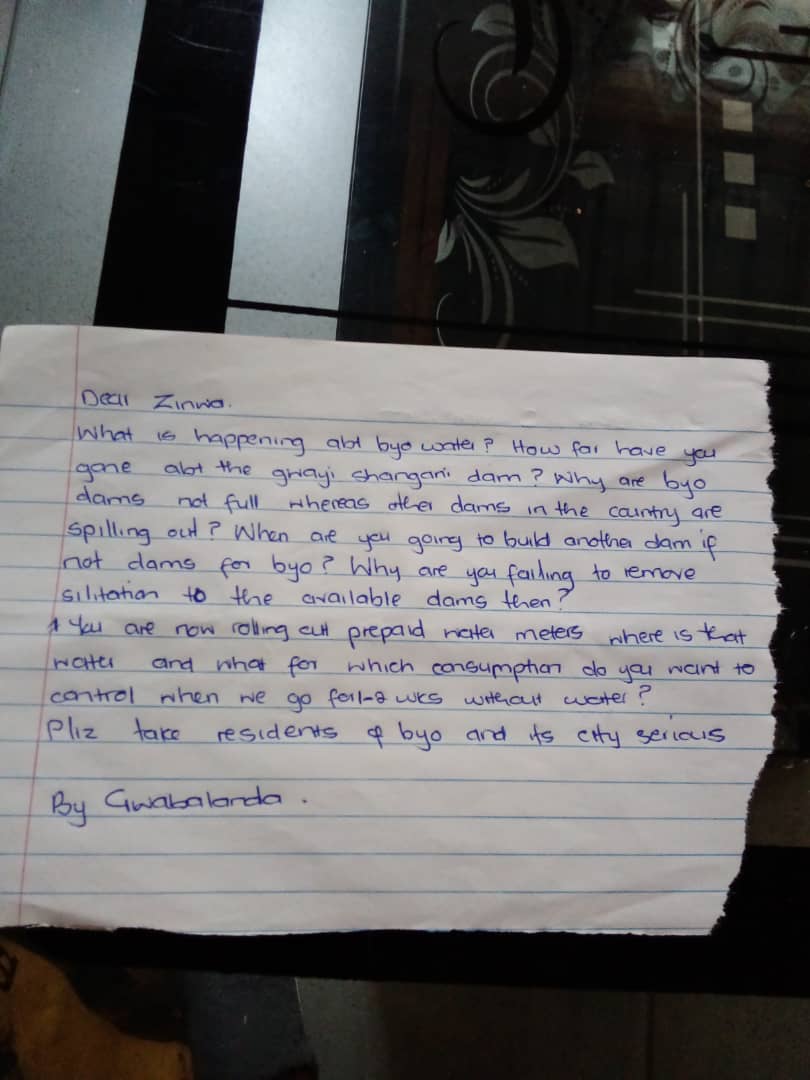 Dear Zinwa.
What is happening abt byo water? How far have you
gone abt the gwayi shangani dam? Why are byo
dams not full whereas other dams in the country are
spilling out? When are you going to build another dam if
not dams for byo? Why are you failing to remove
silitation to the available dams then?
You are now rolling out prepaid water meters where is that
water and what for which consumption do you want to
control when we go for 1-2 wks without water?
Pliz take residents of byo and its city serious
By Gwabalanda.